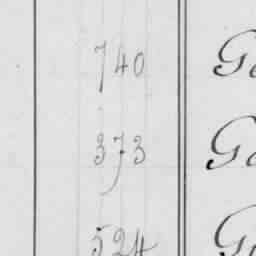 740 Ge
373 Ga
524 G